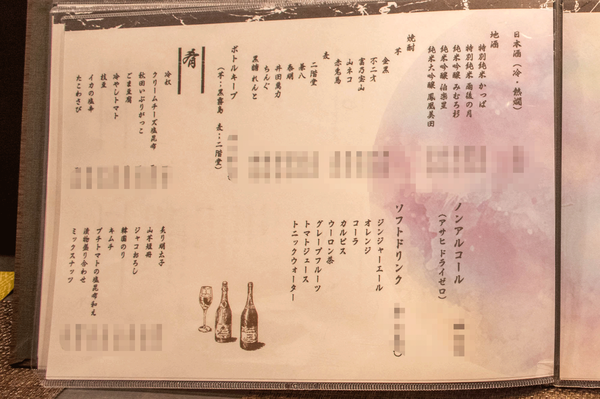 日本酒(冷・熱燗)
地酒
特別純米 かっぱ
特別純米 雨後の月
純米吟醸 みむろ杉
純米吟醸 伯楽星
純米大吟醸 鳳凰美田
焼酎
芋
金黒
不二才
富乃宝山
山ネコ
赤兎馬
麦
二階堂
兼八
泰明
井田萬力
ちんぐ
黒糖 れんと
ボトルキープ
(芋:黒霧島 麦:二階堂)
肴
冷奴
クリームチーズ塩昆布
秋田いぶりがっこ
ごま豆腐
冷やしトマト
枝豆
イカの塩辛
たこわさび
ノンアルコール
(アサヒ ドライゼロ)
ソフトドリンク
ジンジャーエール
オレンジ
コーラ
カルピス
ウーロン茶
グレープフルーツ
トマトジュース
トニックウォーター
炙り明太子
山芋短冊
ジャコおろし
韓国のり
キムチ
プチトマトの塩昆布和え
漬物盛り合わせ
ミックスナッツ